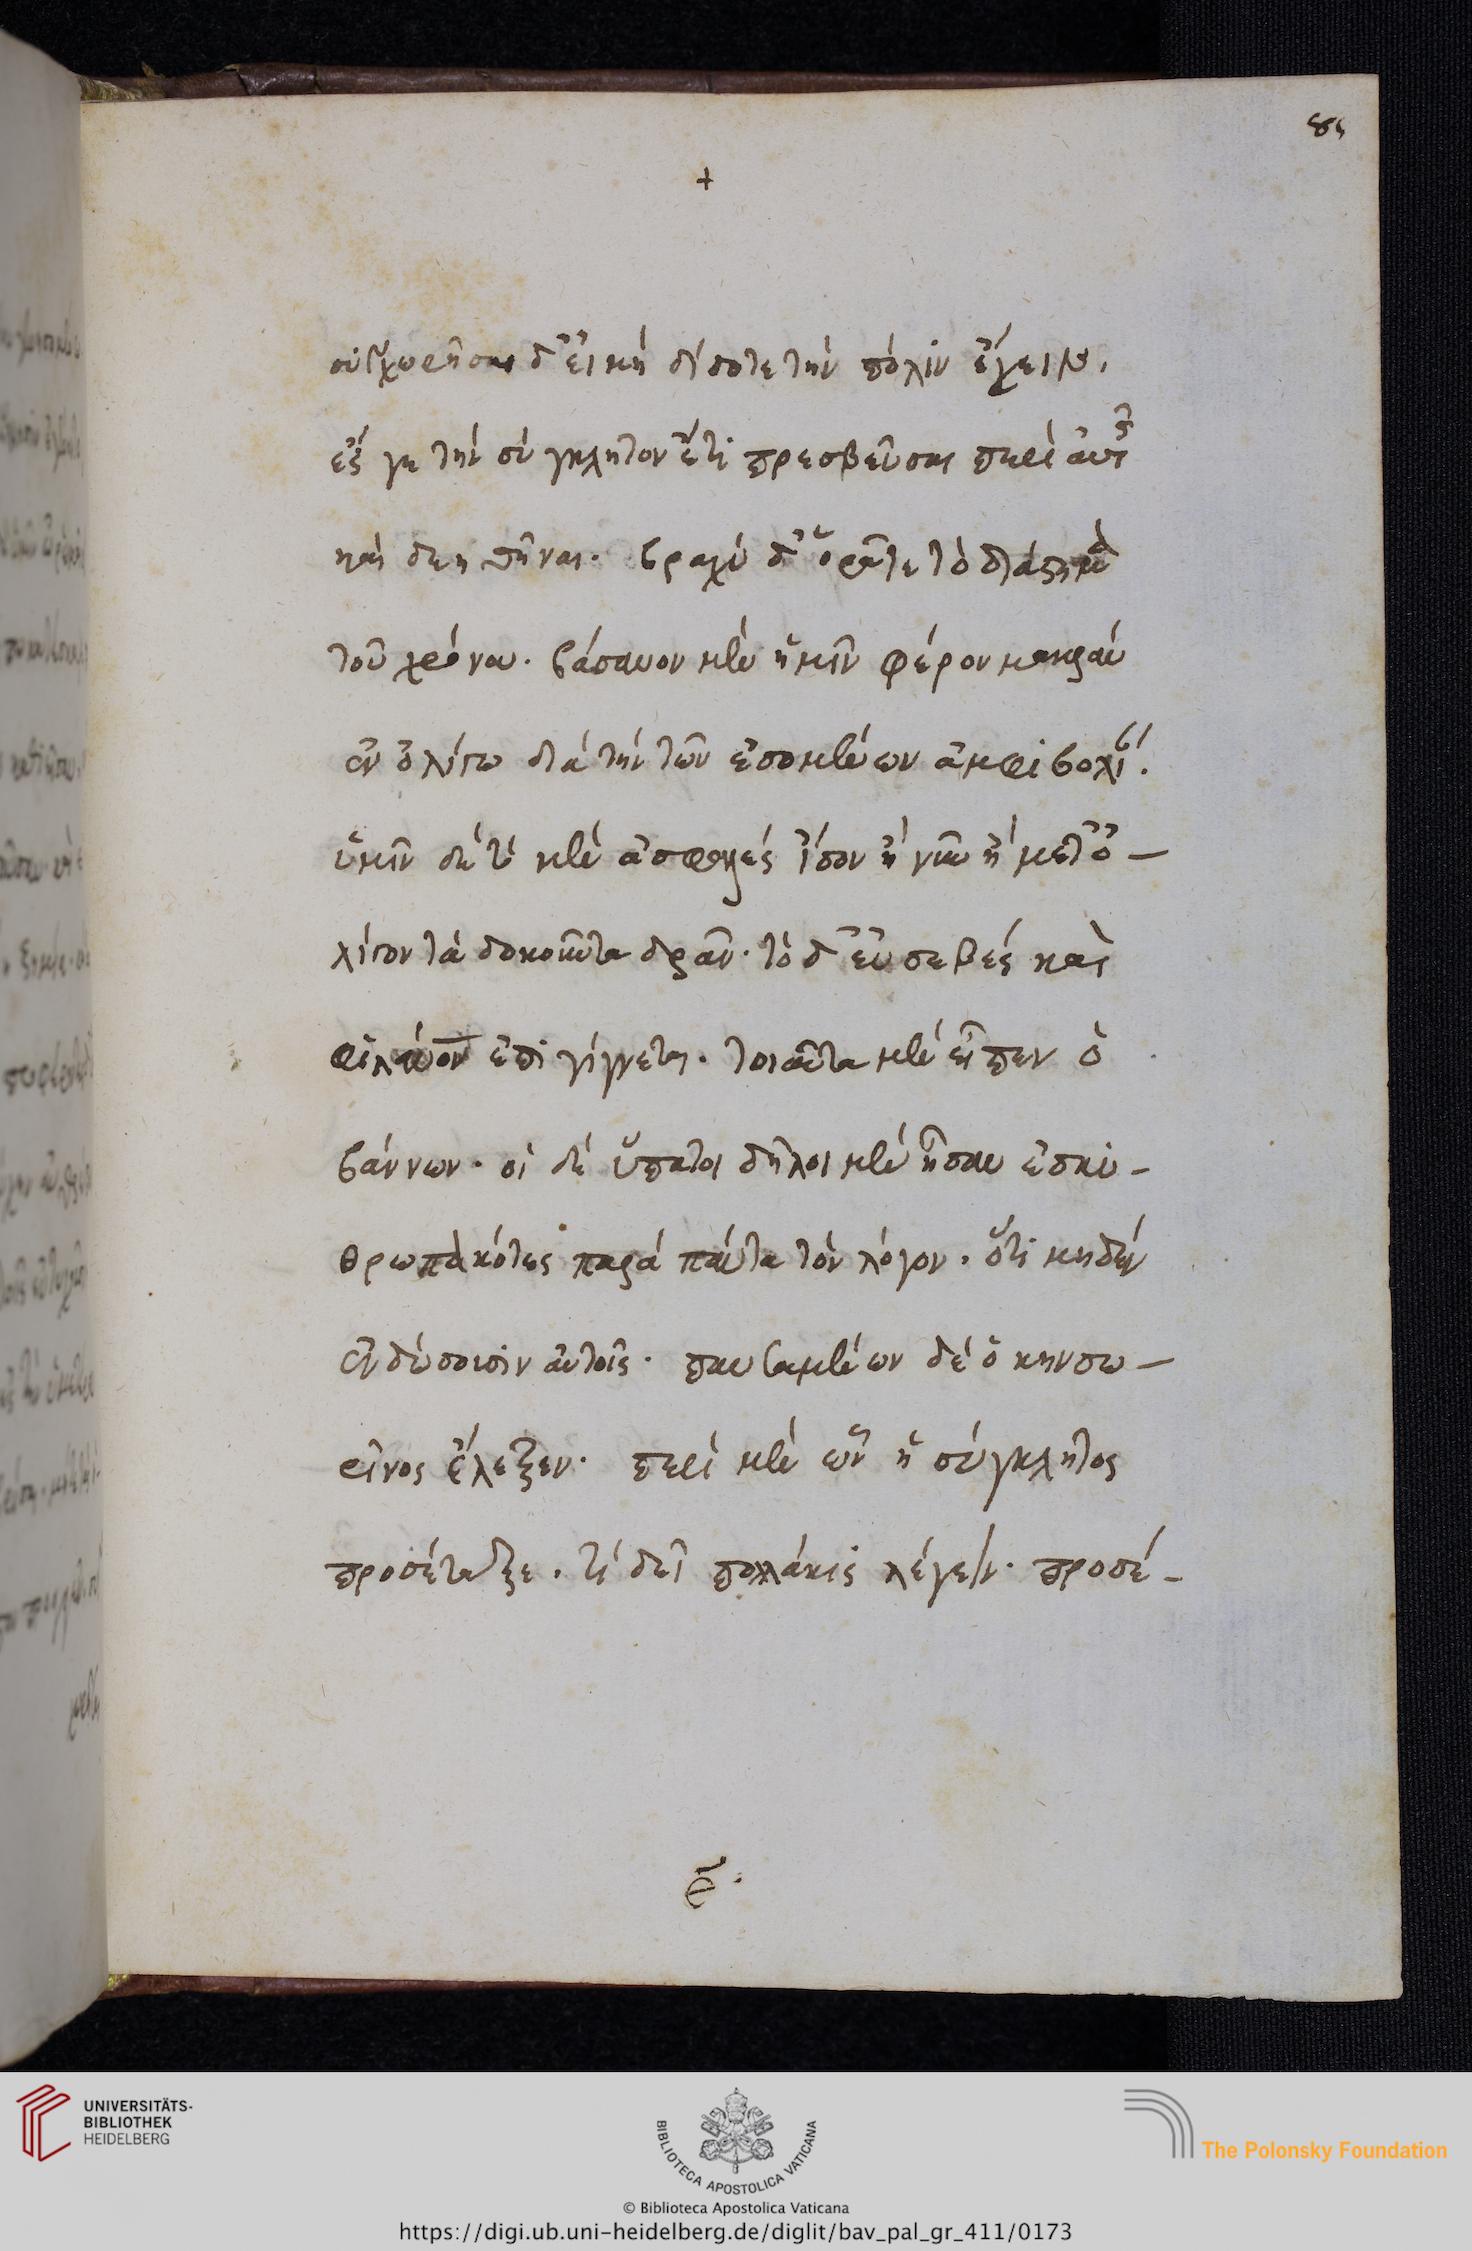 85
+
συγχωρῆσαι δ' εἰ μὴ δίδοτε τὴν πόλιν ἔχειν,
ἔς γε τὴν σύγκλητον ἔτι πρεσβεῦσαι περὶ αὐτῆς
καὶ δεηθῆναι. βραχὺ δ' ὁρᾶτε τὸ διάστημα
τοῦ χρόνου. βάσανον μὲν ἡμῖν φέρον μακρὰν
ἐν ὀλίγῳ διὰ τὴν τῶν ἐσομένων ἀμφιβολίαν.
ὑμῖν δὲ τὸ μὲν ἀσφαλὲς ἴσον ἢ νῦν ἢ μετ' ὀ-
λίγον τὰ δοκοῦντα δρᾶν. τὸ δ' εὐσεβὲς καὶ
φιλάνον ἐπιγίγνεται. τοιαῦτα μὲν εἶπεν ὁ
βάννων. οἱ δὲ ὕπατοι δῆλοι μὲν ἦσαν ἐσκυ-
θρωπακότες παρὰ πάντα τὸν λόγον. ὅτι μηδὲν
ἐνδώσοισιν αὐτοῖς. παυσαμένων δὲ ὁ κηνσω-
ρῖνος ἔλεξεν. περὶ μὲν ὧν ἡ σύγκλητος
προσέταξε. τί δεῖ πολλάκις λέγειν. προσέ-
UNIVERSITÄTS-
BIBLIOTHEK
HEIDELBERG
BIBLIOTECA APOSTOLICA VATICANA
The Polonsky Foundation
© Biblioteca Apostolica Vaticana
https://digi.ub.uni-heidelberg.de/diglit/bav_pal_gr_411/0173